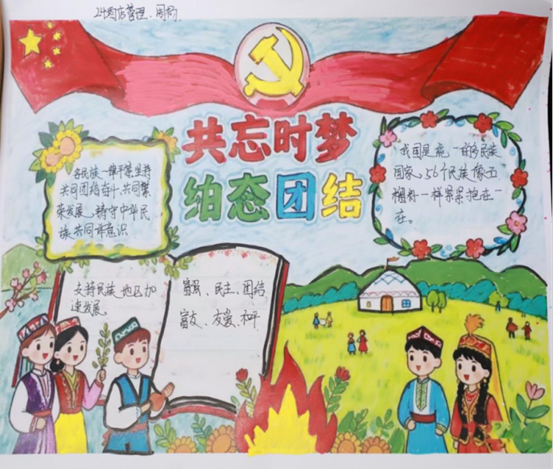 24酒店管理、周
共忘时梦
绐态团结
各民族一律平等坚持
共同团结奋斗、共同繁
荣发展、铸守中华民
族共同体意识
我国是统一的多民族
国家、56个民族像石
榴籽一样紧紧抱在一
在。
支持民族地区加
速发展
富强、民主、团结
富友、友爱、和平